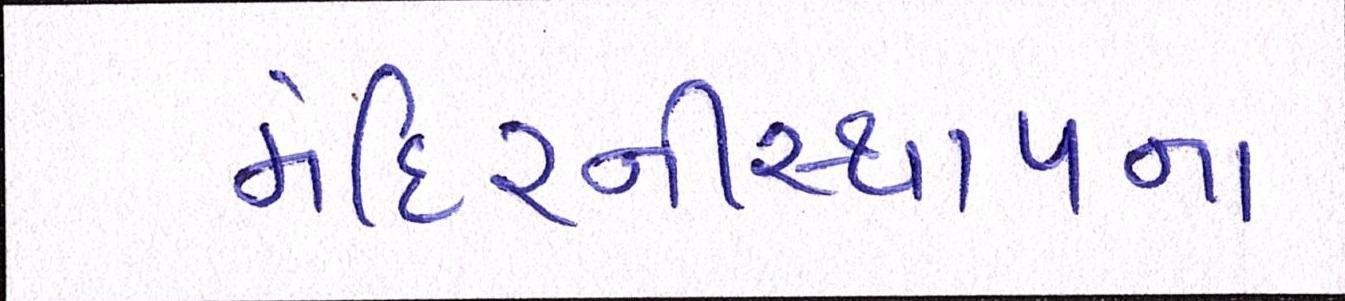 મંદિરનીસ્થાપના